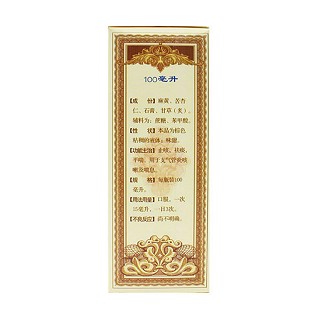 100毫升
【成 份】麻黄、苦杏
仁、石膏、甘草(炙)。
辅料为:蔗糖、苯甲酸。
【性 状】本品为棕色
粘稠的液体;味甜。
【功能主治】止咳、祛痰、
平喘。用于支气管炎咳
嗽及喘息。
【规 格】每瓶装100
毫升。
【用法用量】口服,一次
15毫升,一日3次。
【不良反应】尚不明确。